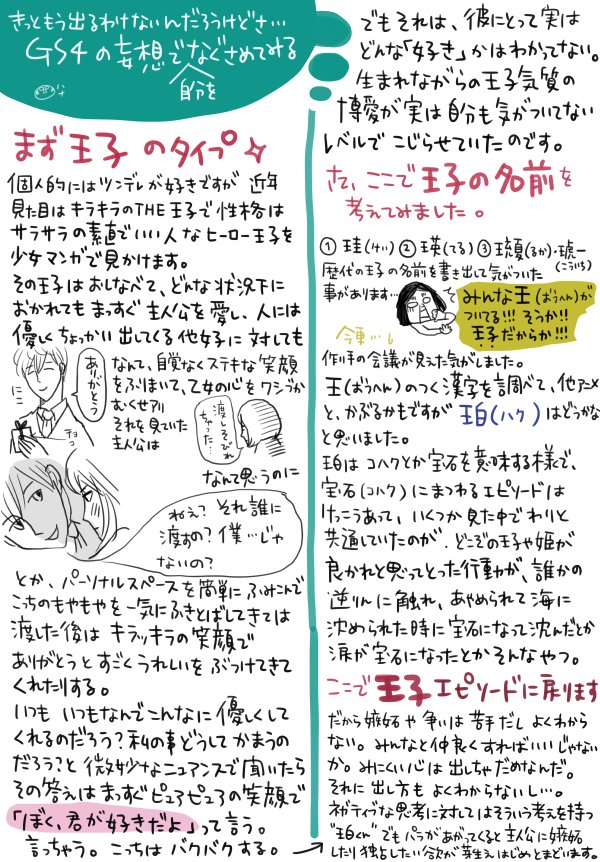 きっともう出るわけないんだろうけどさ…
GS4の妄想でなぐさめてみる
自分を
まず王子のタイプ
個人的にはツンデレが好きですが 近年
見た目はキラキラのTHE王子で性格は
サラサラの素直でいい人なヒーロー王子を
少女マンガで見かけます。
その王子はおしなべて、どんな状況下に
おかれてもまっすぐ主人公を愛し、人には
優しくちょっかい出してくる他女子に対しても
なんて、自覚なくステキな笑顔
をふりまいて、乙女の心をワシづか
むくせアリ
それを見ていた
主人公は
ありがとう
ニコ
チョコ
渡しそびれちゃった…
なんて思うのに
ねぇ？それ誰に
渡すの？僕…じゃ
ないの？
とか、パーソナルスペースを簡単にふみこんで
こっちのもやもやを一気にふきとばしてきては
渡した後は キラッキラの笑顔で
ありがとうとすごくうれしいをぶつけてきて
くれたりする。
いつも いつもなんでこんなに優しくして
くれるのだろう？私の事どうしてかまうの
だろう？と 微妙なニュアンスで聞いたら
その答えはまっすぐピュアピュアの笑顔で
「ぼく、君が好きだよ」って言う。
言っちゃう。こっちはバクバクする。→
でもそれは、彼にとって実は
どんな「好き」かはわかってない。
生まれながらの王子気質の
博愛が実は自分も気がついてない
レベルでこじらせていたのです。
さて、ここで王子の名前を
考えてみました。
①珪(けい)②瑛(てる)③琉夏(るか)・琥一
(こういち)
歴代の王子の名前を書き出して気がついた
事があります…で
みんな王(おうへん)が
ついてる!!!そうか!!
王子だからか!!!
今更…
作り手の会議が見えた気がしました。
王(おうへん)のつく漢字を調べて、他アニメ
と、かぶるかもですが 珀(ハク)はどうかな
と思いました。
珀はコハクとか宝石を意味する様で、
宝石(コハク)にまつわるエピソードは
けっこうあって、いくつか見た中でわりと
共通していたのが、どこぞの王子や姫が
良かれと思ってとった行動が、誰かの
逆りんに触れ、あやめられて海に
沈められた時に宝石になって沈んだとか
涙が宝石になったとかそんなやつ。
ここで王子エピソードに戻ります
だから嫉妬や争いは苦手だし よくわから
ない。みんなと仲良くすればいいじゃない
か。みにくい心は出しちゃだめなんだ。
それに出し方もよくわからないし…。
ネガティブな思考に対してはそういう考えを持つ
"珀くん"でもパラがあがってくると主人公に嫉妬
したり独占したい欲が芽生えはじめとまどいます。